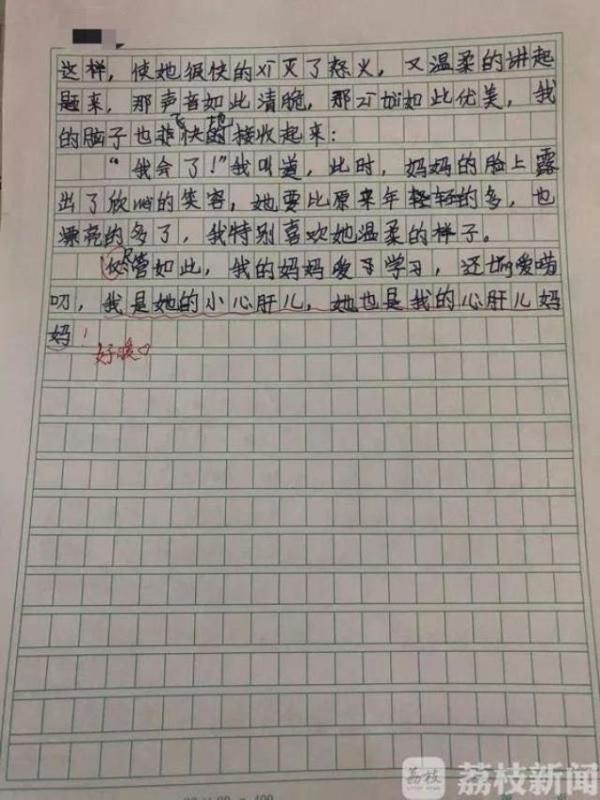 这样，使她很快的xī灭了怒火，又温柔的讲起
题来，那声音如此清脆，那zī tài如此优美，我
飞 地
的脑子也非快的接收起来：
“我会了！”我叫道，此时，妈妈的脸上露
出了欣wèi的笑容，她要比原来年轻轻的多，也
漂亮的多了，我特别喜欢她温柔的样子。
尽
管如此，我的妈妈爱于学习，还
爱唠
叨，我是她的小心肝儿，她也是我的心肝儿妈
妈！
好暖
荔枝
荔枝新闻